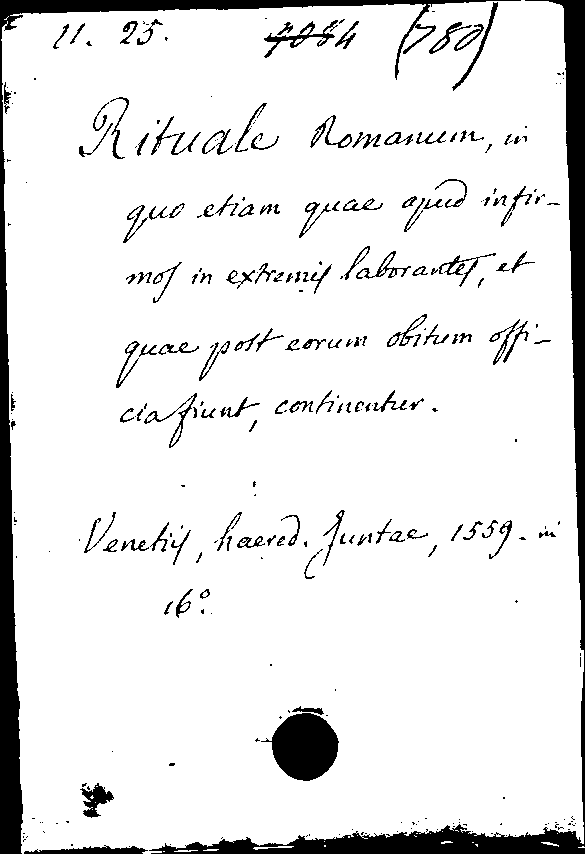 11. 25. 7084 (780)
Rituale Romanum, in
quo etiam quae apud infir-
mos in extremis laborantes, et
quae post eorum obitum offi-
cia fiunt, continentur.
Venetiis, haered. Juntae, 1559. in
16º.